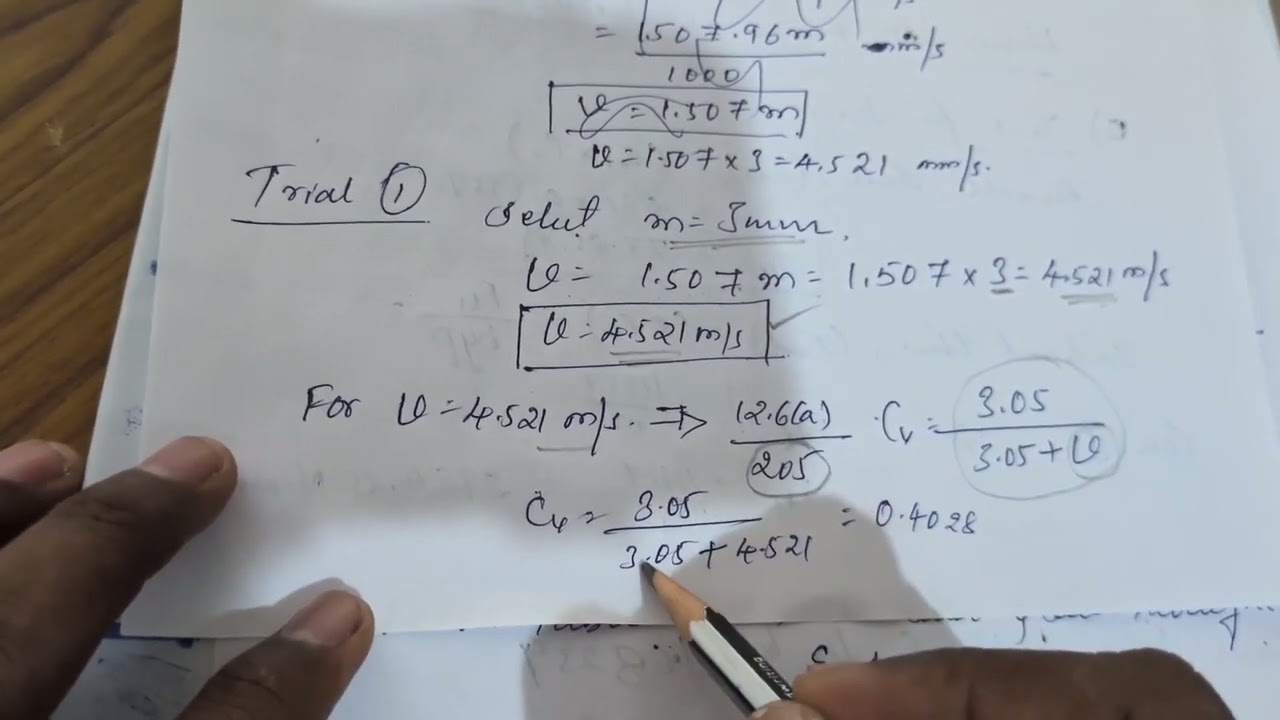 = 1.507.96m / 1000 mm/s
v = 1.507 m
v = 1.507 × 3 = 4.521 mm/s.
Trial ①
Select m = 3mm.
v = 1.507 m = 1.507 × 3 = 4.521 m/s
v = 4.521 m/s
For v = 4.521 m/s. ⇒ 12.6(a) / 205 · Cv = 3.05 / 3.05 + v
Cv = 3.05 / 3.05 + 4.521 = 0.4028